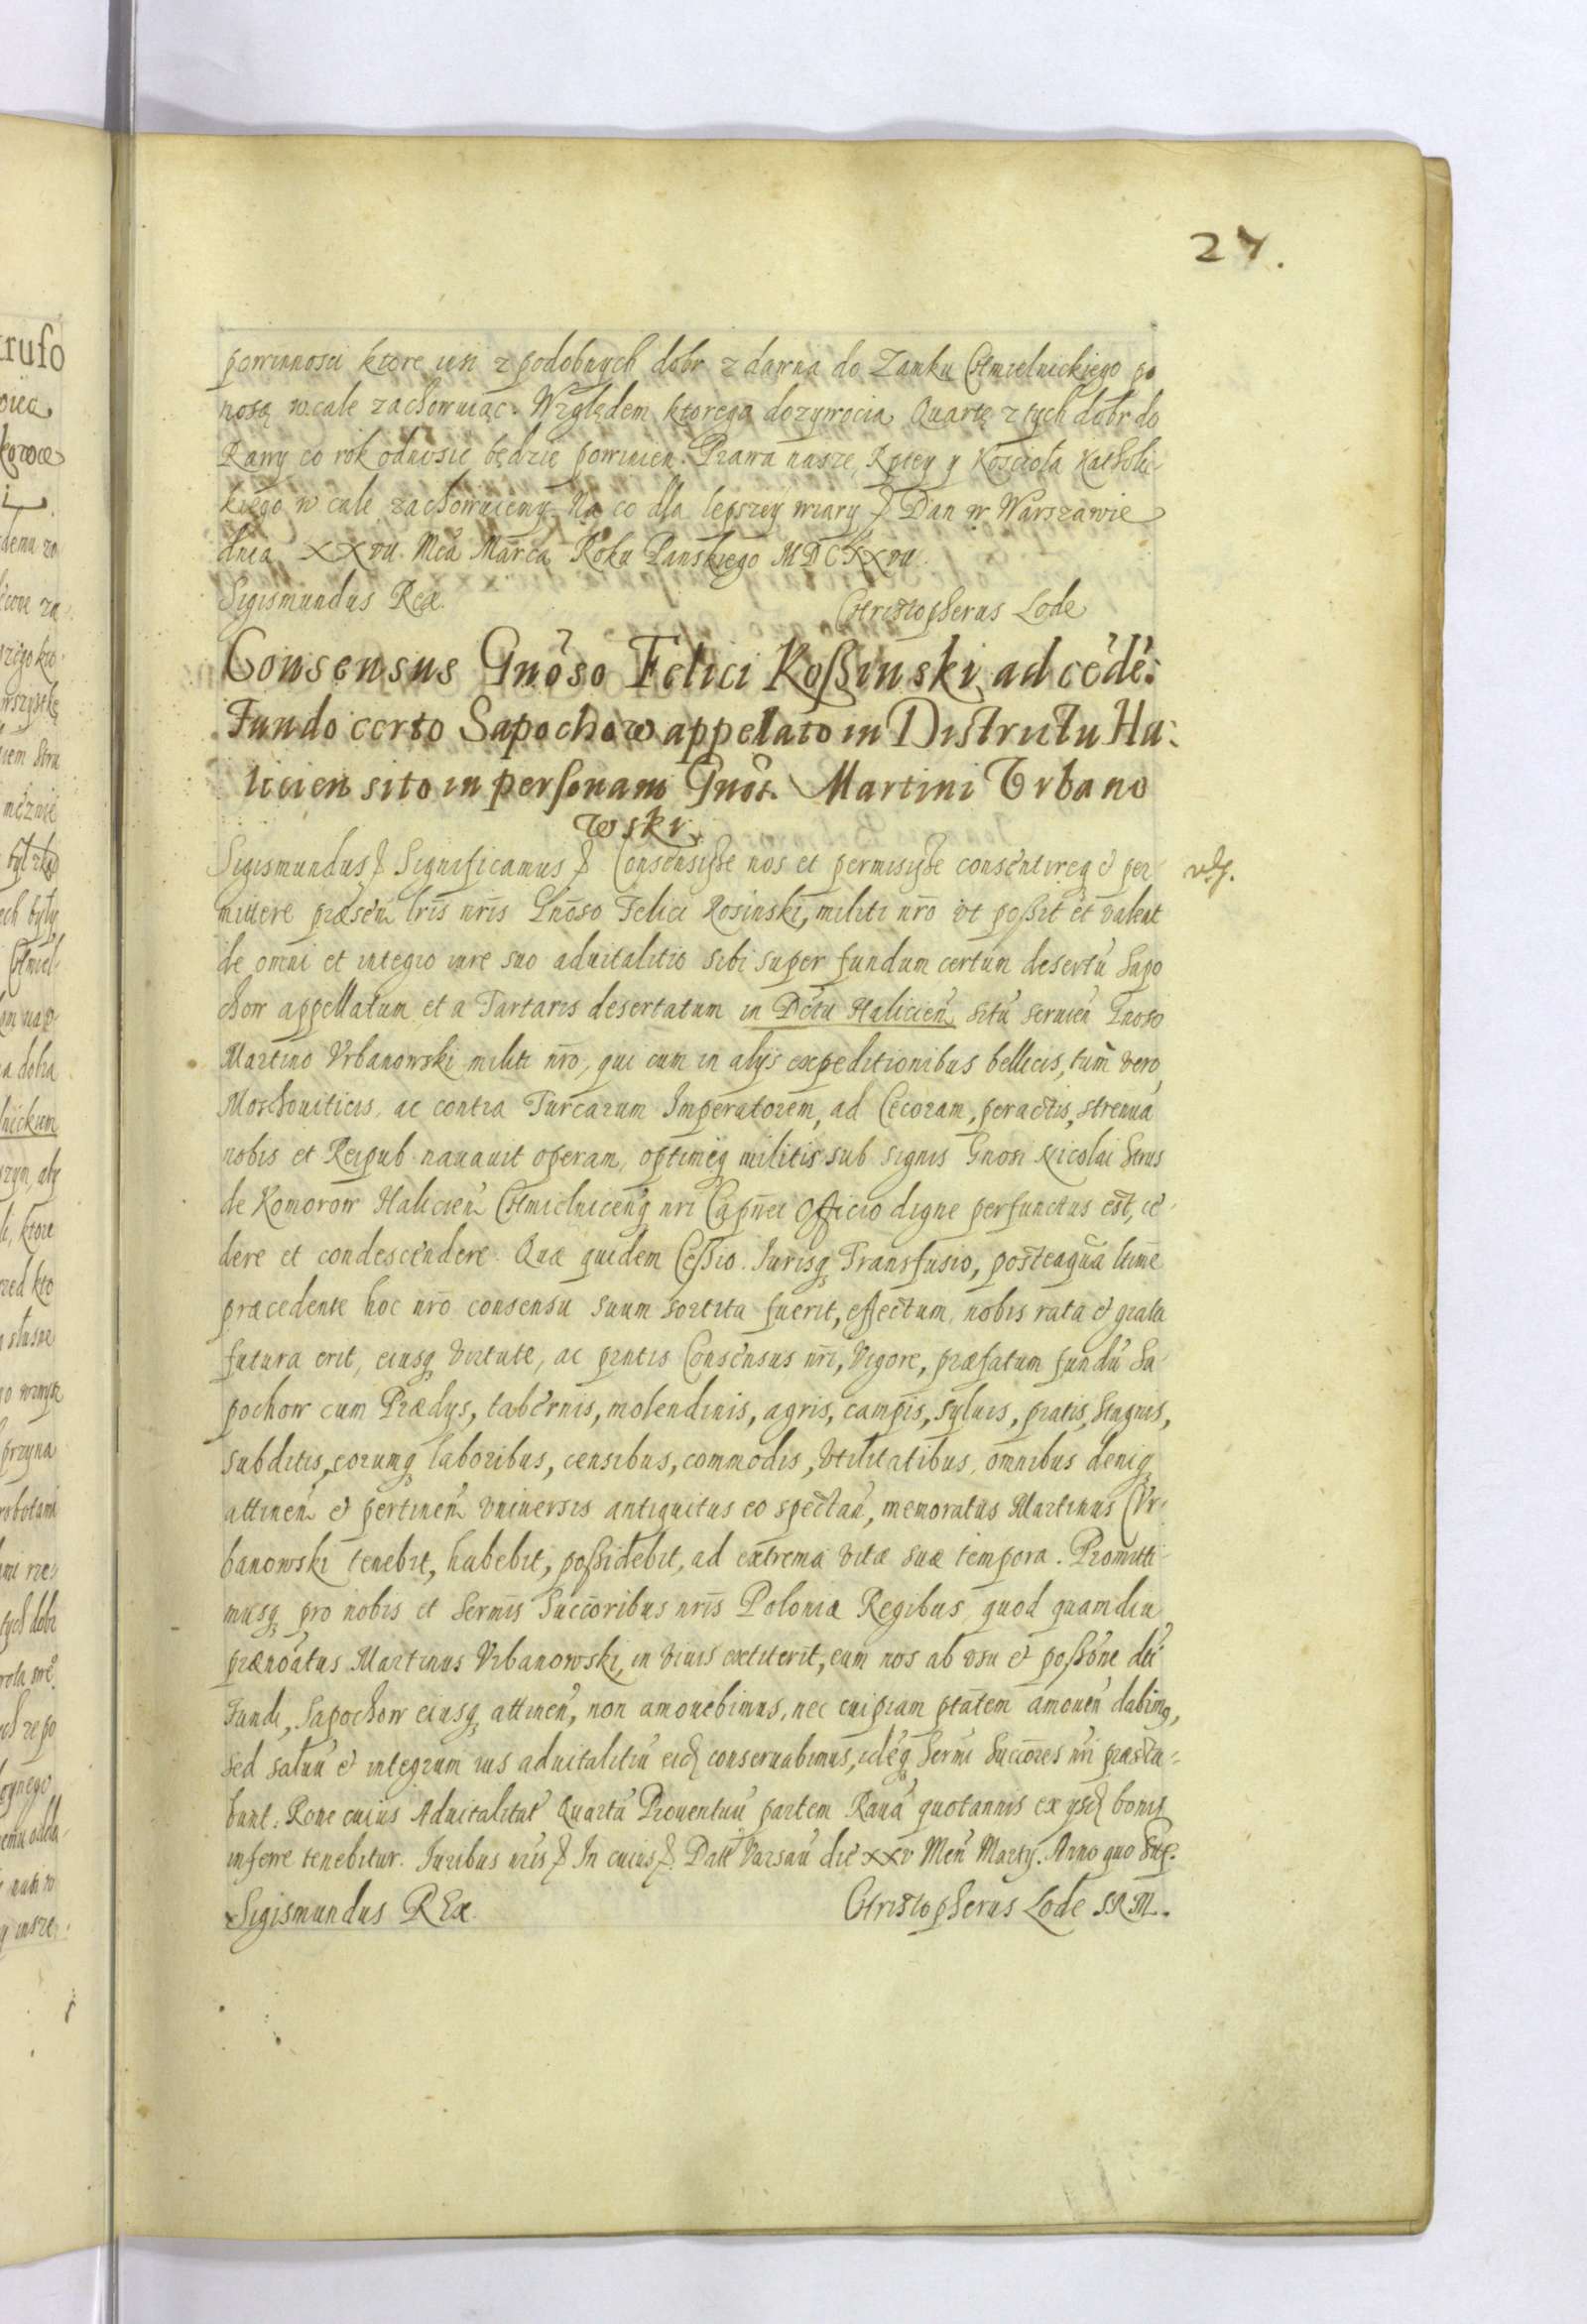 27.
powinnosci ktore insi z podobnych dobr zdawna do Zamku Chmielnickiego po
noszą wcale zachowuiąc. Względem ktorego dozywocia Quartę z tych dobr do
Rawy co rok odnosic będzie powinien. Prawa nasze, Rptey y Kosciola Katholic-
kiego w cale zachowuiemy. Na co dla lepszey wiary & Dan w Warszawie
dnia XXVII. Mca Marca Roku Panskiego MDCXXVII.
Sigismundus Rex. Christopherus Lode
Consensus Gnõso Felici Kossinski ad cedé:
Fundo certo Sapochow appelato in Districtu Ha:
licien sito in personam Gnõs. Martini Vrbano
wski.
Sigismundus & Significamus & Consensisse nos et permisisse consentireq et per
mittere præsen lris nris Gnõso Felici Rosinski, militi nrõ vt possit et valeat
de omni et integro iure suo aduitalitio sibi super fundum certum desertũ Sapo
chow appellatum et a Tartaris desertatum in Dctu Halicien sitũ seruien Gnoso
Martino Vrbanowski militi nrõ, qui cum in alijs expeditionibus bellicis, tum vero
Moschouiticis, ac contra Turcarum Imperatorem, ad Cecoram, peractis, strenuã
nobis et Reipub nauauit operam, optimeq militis sub signis Gnosi Nicolai Strus
de Komorow Halicien Chmielnicenq nri Capnei officio digne perfunctus est, ce-
dere et condescendere. Quæ quidem Cessio Iurisq Transfusio, posteaquã
præcedente hoc nrõ consensu suum sortita fuerit, effectum, nobis rata et grata
futura erit, eiusq virtute, ac pntis Consensus nri, vigore, præfatum fundũ Sa-
pochow cum Prædijs, tabernis, molendinis, agris, campis, syluis, pratis, stagnis,
subditis, eorumq laboribus, censibus, commodis, vtilitatibus, omnibus deniq
attinen et pertinen vniuersis antiquitus eo spectan, memoratus Martinus Vr-
banowski tenebit, habebit, possidebit, ad extrema vitæ suæ tempora. Promitti-
musq pro nobis et Sermis Succoribus nris Poloniæ Regibus, quod quamdiu
prænõatus Martinus Vrbanowski, in viuis extiterit, eum nos ab vsu et possone dci
Fundi, Sapochow eiusq attinen, non amouebimus, nec cuipiam ptatem amouen dabimq,
sed saluũ et integrum ius aduitalitiũ eid conseruabimus, ideq Sermi Succores nri præsta-
bunt. Rone cuius Aduitalitat Quartã Prouentuũ partem Rauã quotannis ex ysd bonis
inferre tenebitur. Iuribus nris & In cuius & Datt Varsau die XXV Men Martij. Anno quo Sup.
Sigismundus REx. Christopherus Lode